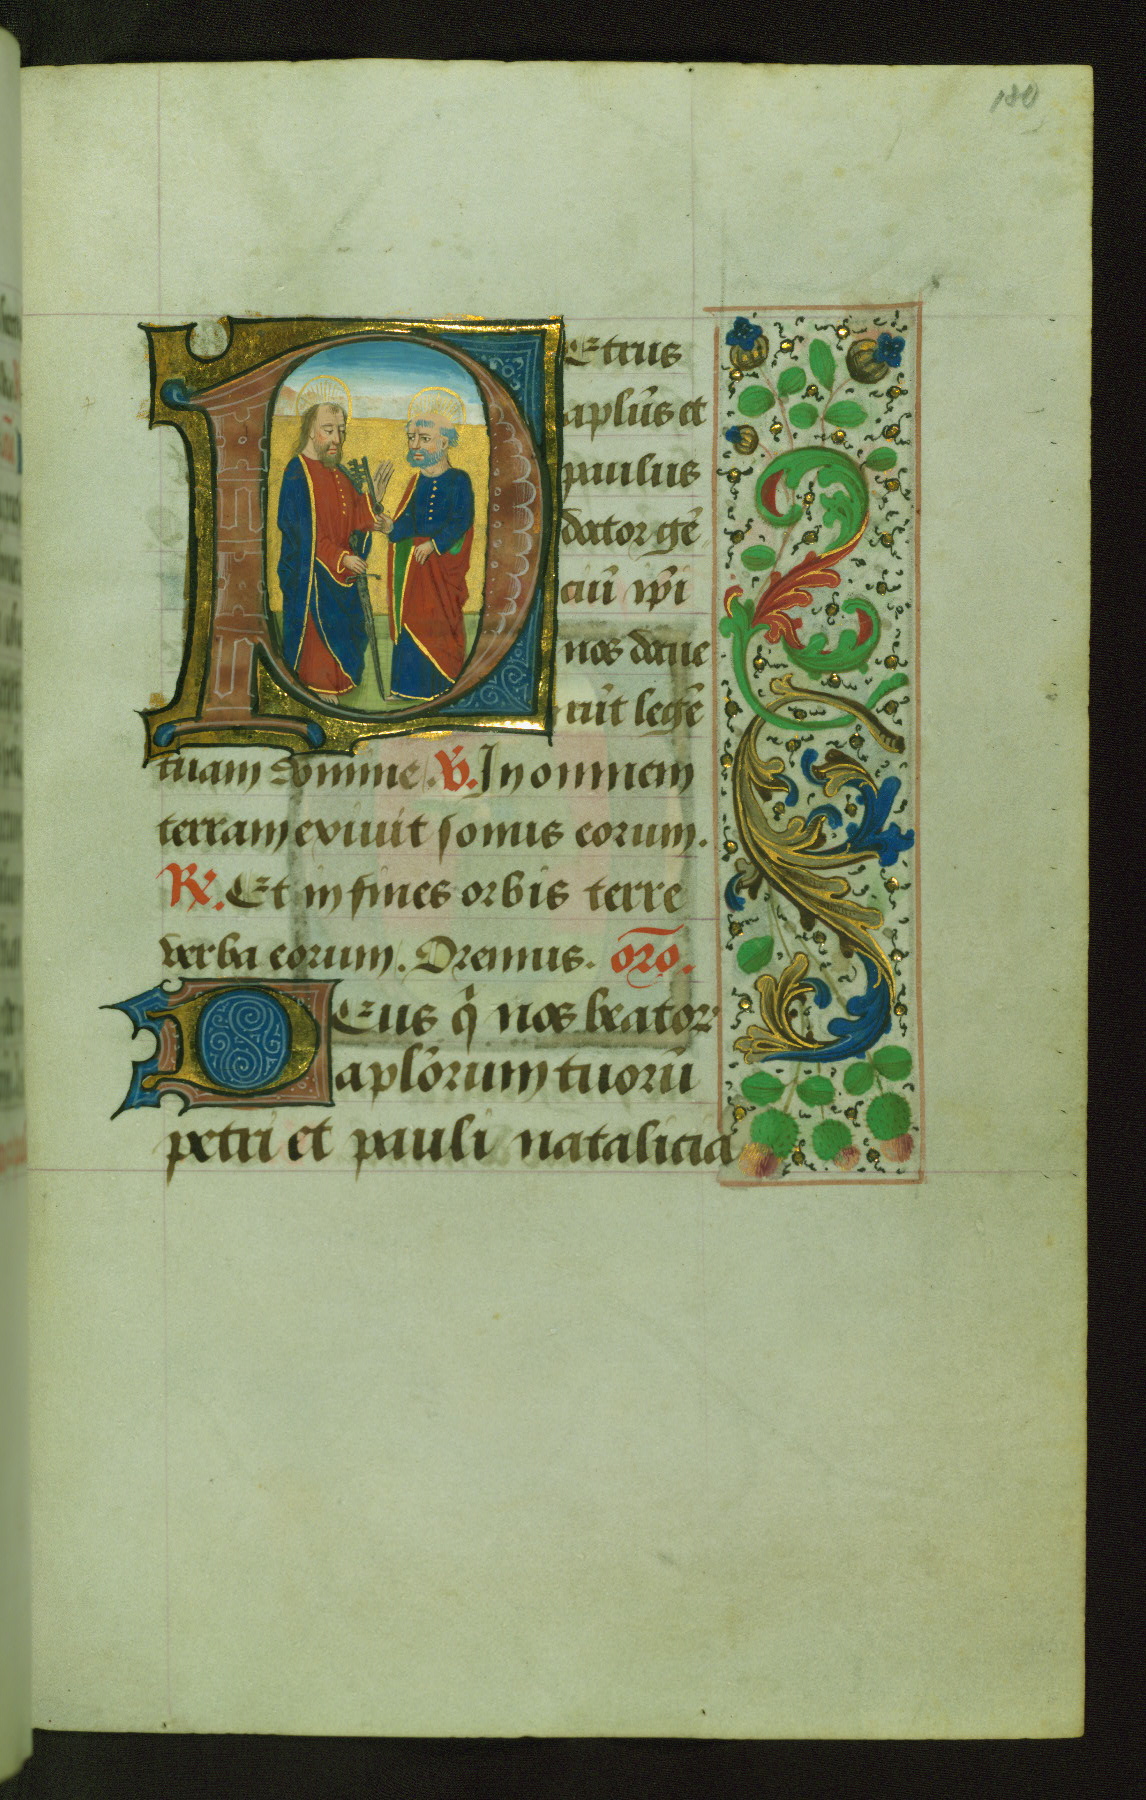 180
PEtrus
aplūs et
paulus
doctor gē
ciū ip̄i
nos docue
rūt legē
tuam domine. V. In omnem
terram exivit sonus eorum.
R. Et in fines orbis terre
verba eorum. Oremus. oro.
DEus q̄ nos beator
aplōrum tuorū
petri et pauli natalicia